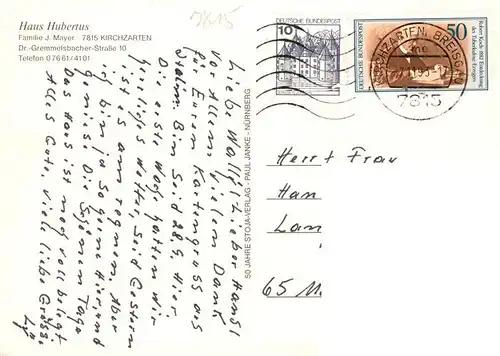 Haus Hubertus
Familie J. Mayer 7815 KIRCHZARTEN
Dr.-Gremmelsbacher-Straße 10
Telefon 07661/4101
7815
Lieber Hans!
Vor Allem vielen Dank
für Euren Kartengruss aus
Seid 28.9. Hier.
Die erste Woche hatten wir
herrliches Wetter, seid Gestern
ist es am regnen. Aber
ich bin ja so gerne Hier, und
genieße Die schönen Tage
Das Haus ist noch voll belegt
Alles Gute, viele liebe Grüsse
50 JAHRE STOJA-VERLAG - PAUL JANKE - NÜRNBERG
10
DEUTSCHE BUNDESPOST
50
DEUTSCHE BUNDESPOST
Robert Koch 1882 Entdeckung
des Tuberkulose-Erregers
KIRCHZARTEN, BREISGAU
7815
Herrt Frau
Han
Lan
65 M.